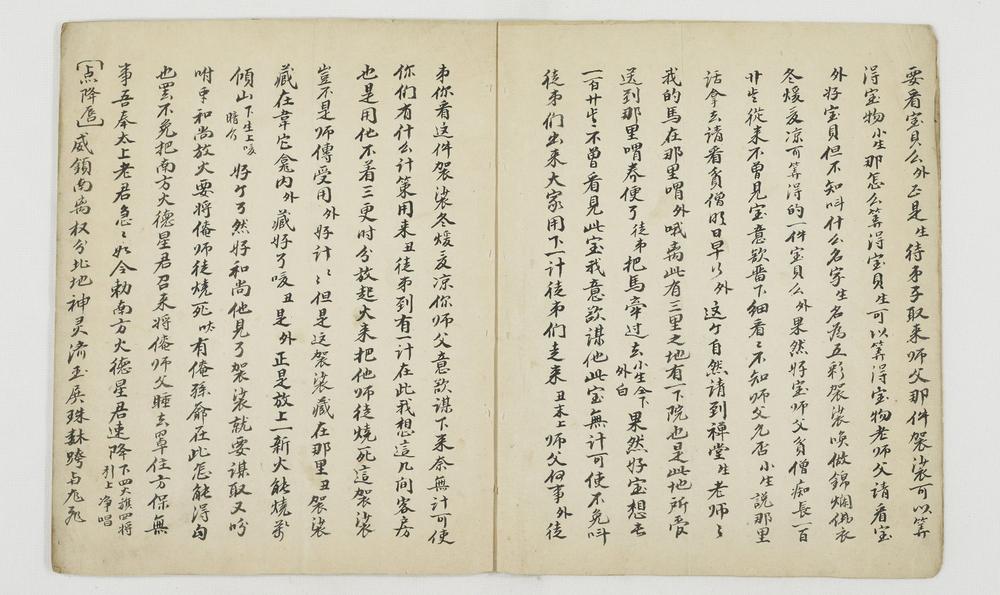 要看宝貝么外正是生待弟子取来师父那件袈裟可以筭
得宝物小生那怎么筭得宝貝生可以筭得宝物老师父请看宝
外好宝貝但不知叫什么名字生名为五彩袈裟唤做錦斕佛衣
冬煖夏凉可筭得的一件宝貝么外果然好宝师父貧僧痴長一百
廿岁從来不曾見宝意欲晋下細看〻不知师父允否小生説那里
话拿去请看貧僧明日早以外这个自然请到禅堂生老师〻
我的馬在那里喂外哦离此有三里之地有一下院也是此地所管
送到那里喂养便了徒弟把馬牽过去小生仝下外白果然好宝想吾
一百廿岁不曾看見此宝我意欲谋他此宝無計可使不免叫
徒弟们出来大家用下一計徒弟们走来丑末上师父何事外徒
弟你看这件袈裟冬煖夏凉你师父意欲谋下来奈無計可使
你们有什么計策用来丑徒弟到有一計在此我想這几间客房
也是用他不着三更时分放起火来把他师徒烧死這袈裟
豈不是师傳受用外好計〻但是这袈裟藏在那里丑袈裟
藏在韋它龛内外藏好了嗳丑是外正是放上一新火能烧萬
傾山下生上嗳暗介好个了然好和尚他見了袈裟就要谋取又吩
咐東和尚放火要将俺师徒烧死呔有俺孫爺在此怎能得勾
也罢不免把南方火德星君召来将俺师父睡去罩住方保無
事吾奉太上老君急〻如令勅南方火德星君速降下四大旗四将引上净唱
【点降唇】威鎮南离权分北地神灵济玉屄珠𮈔跨与尨飛